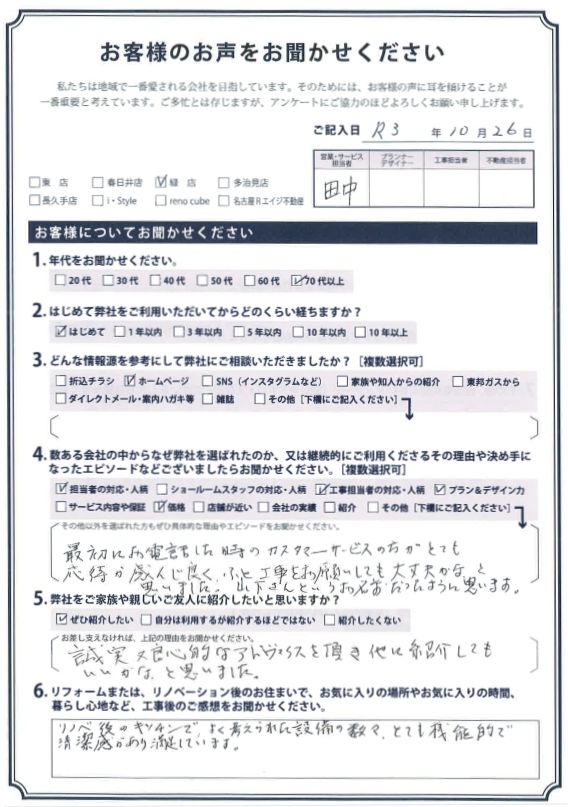 お客様のお声をお聞かせください
私たちは地域で一番愛される会社を目指しています。そのためには、お客様の声に耳を傾けることが
一番重要と考えています。ご多忙とは存じますが、アンケートにご協力のほどよろしくお願い申し上げます。
ご記入日 R3 年 10 月 26 日
営業・サービス担当者 プランナーデザイナー 工事担当者 不動産担当者
田中
□東 店 □春日井店 ☑緑 店 □多治見店
□長久手店 □i・Style □reno cube □名古屋Rエイジ不動産
お客様についてお聞かせください
1. 年代をお聞かせください。
□20代 □30代 □40代 □50代 □60代 ☑70代以上
2. はじめて弊社をご利用いただいてからどのくらい経ちますか？
☑はじめて □1年以内 □3年以内 □5年以内 □10年以内 □10年以上
3. どんな情報源を参考にして弊社にご相談いただきましたか？［複数選択可］
□折込チラシ ☑ホームページ □SNS（インスタグラムなど） □家族や知人からの紹介 □東邦ガスから
□ダイレクトメール・案内ハガキ等 □雑誌 □その他［下欄にご記入ください］
4. 数ある会社の中からなぜ弊社を選ばれたのか、又は継続的にご利用くださるその理由や決め手に
なったエピソードなどございましたらお聞かせください。［複数選択可］
☑担当者の対応・人柄 □ショールームスタッフの対応・人柄 ☑工事担当者の対応・人柄 ☑プラン＆デザイン力
□サービス内容や保証 ☑価格 □店舗が近い □会社の実績 □紹介 □その他［下欄にご記入ください］
その他以外を選ばれた方もぜひ具体的な理由やエピソードをお聞かせください。
最初にお電話した時のカスタマーサービスの方がとても
応待が感んじ良く、ふと工事をお願いしても大丈夫かなと
思いました。山下さんというお名前だったように思います。
5. 弊社をご家族や親しいご友人に紹介したいと思いますか？
☑ぜひ紹介したい □自分は利用するが紹介するほどではない □紹介したくない
お差し支えなければ、上記の理由をお聞かせください。
誠実 又良心的なアドヴァイスを頂き他に紹介しても
いいかなと思いました。
6. リフォームまたは、リノベーション後のお住まいで、お気に入りの場所やお気に入りの時間、
暮らし心地など、工事後のご感想をお聞かせください。
リノベ後のキッチンで、よく考えられた設備の数々、とても機能的で
清潔感があり満足しています。